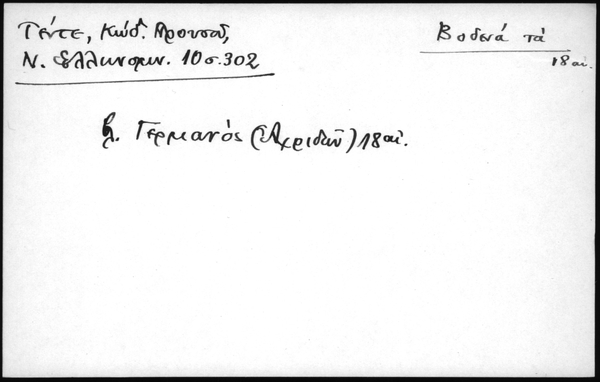 Γέντε, Κώδ. Προυσῶν,
Ν. Ἑλληνομν. 10 σ. 302
Βοδενά τὰ
18 αἰ.
βλ. Γερμανός (Ἀχριδῶν) 18 αἰ.